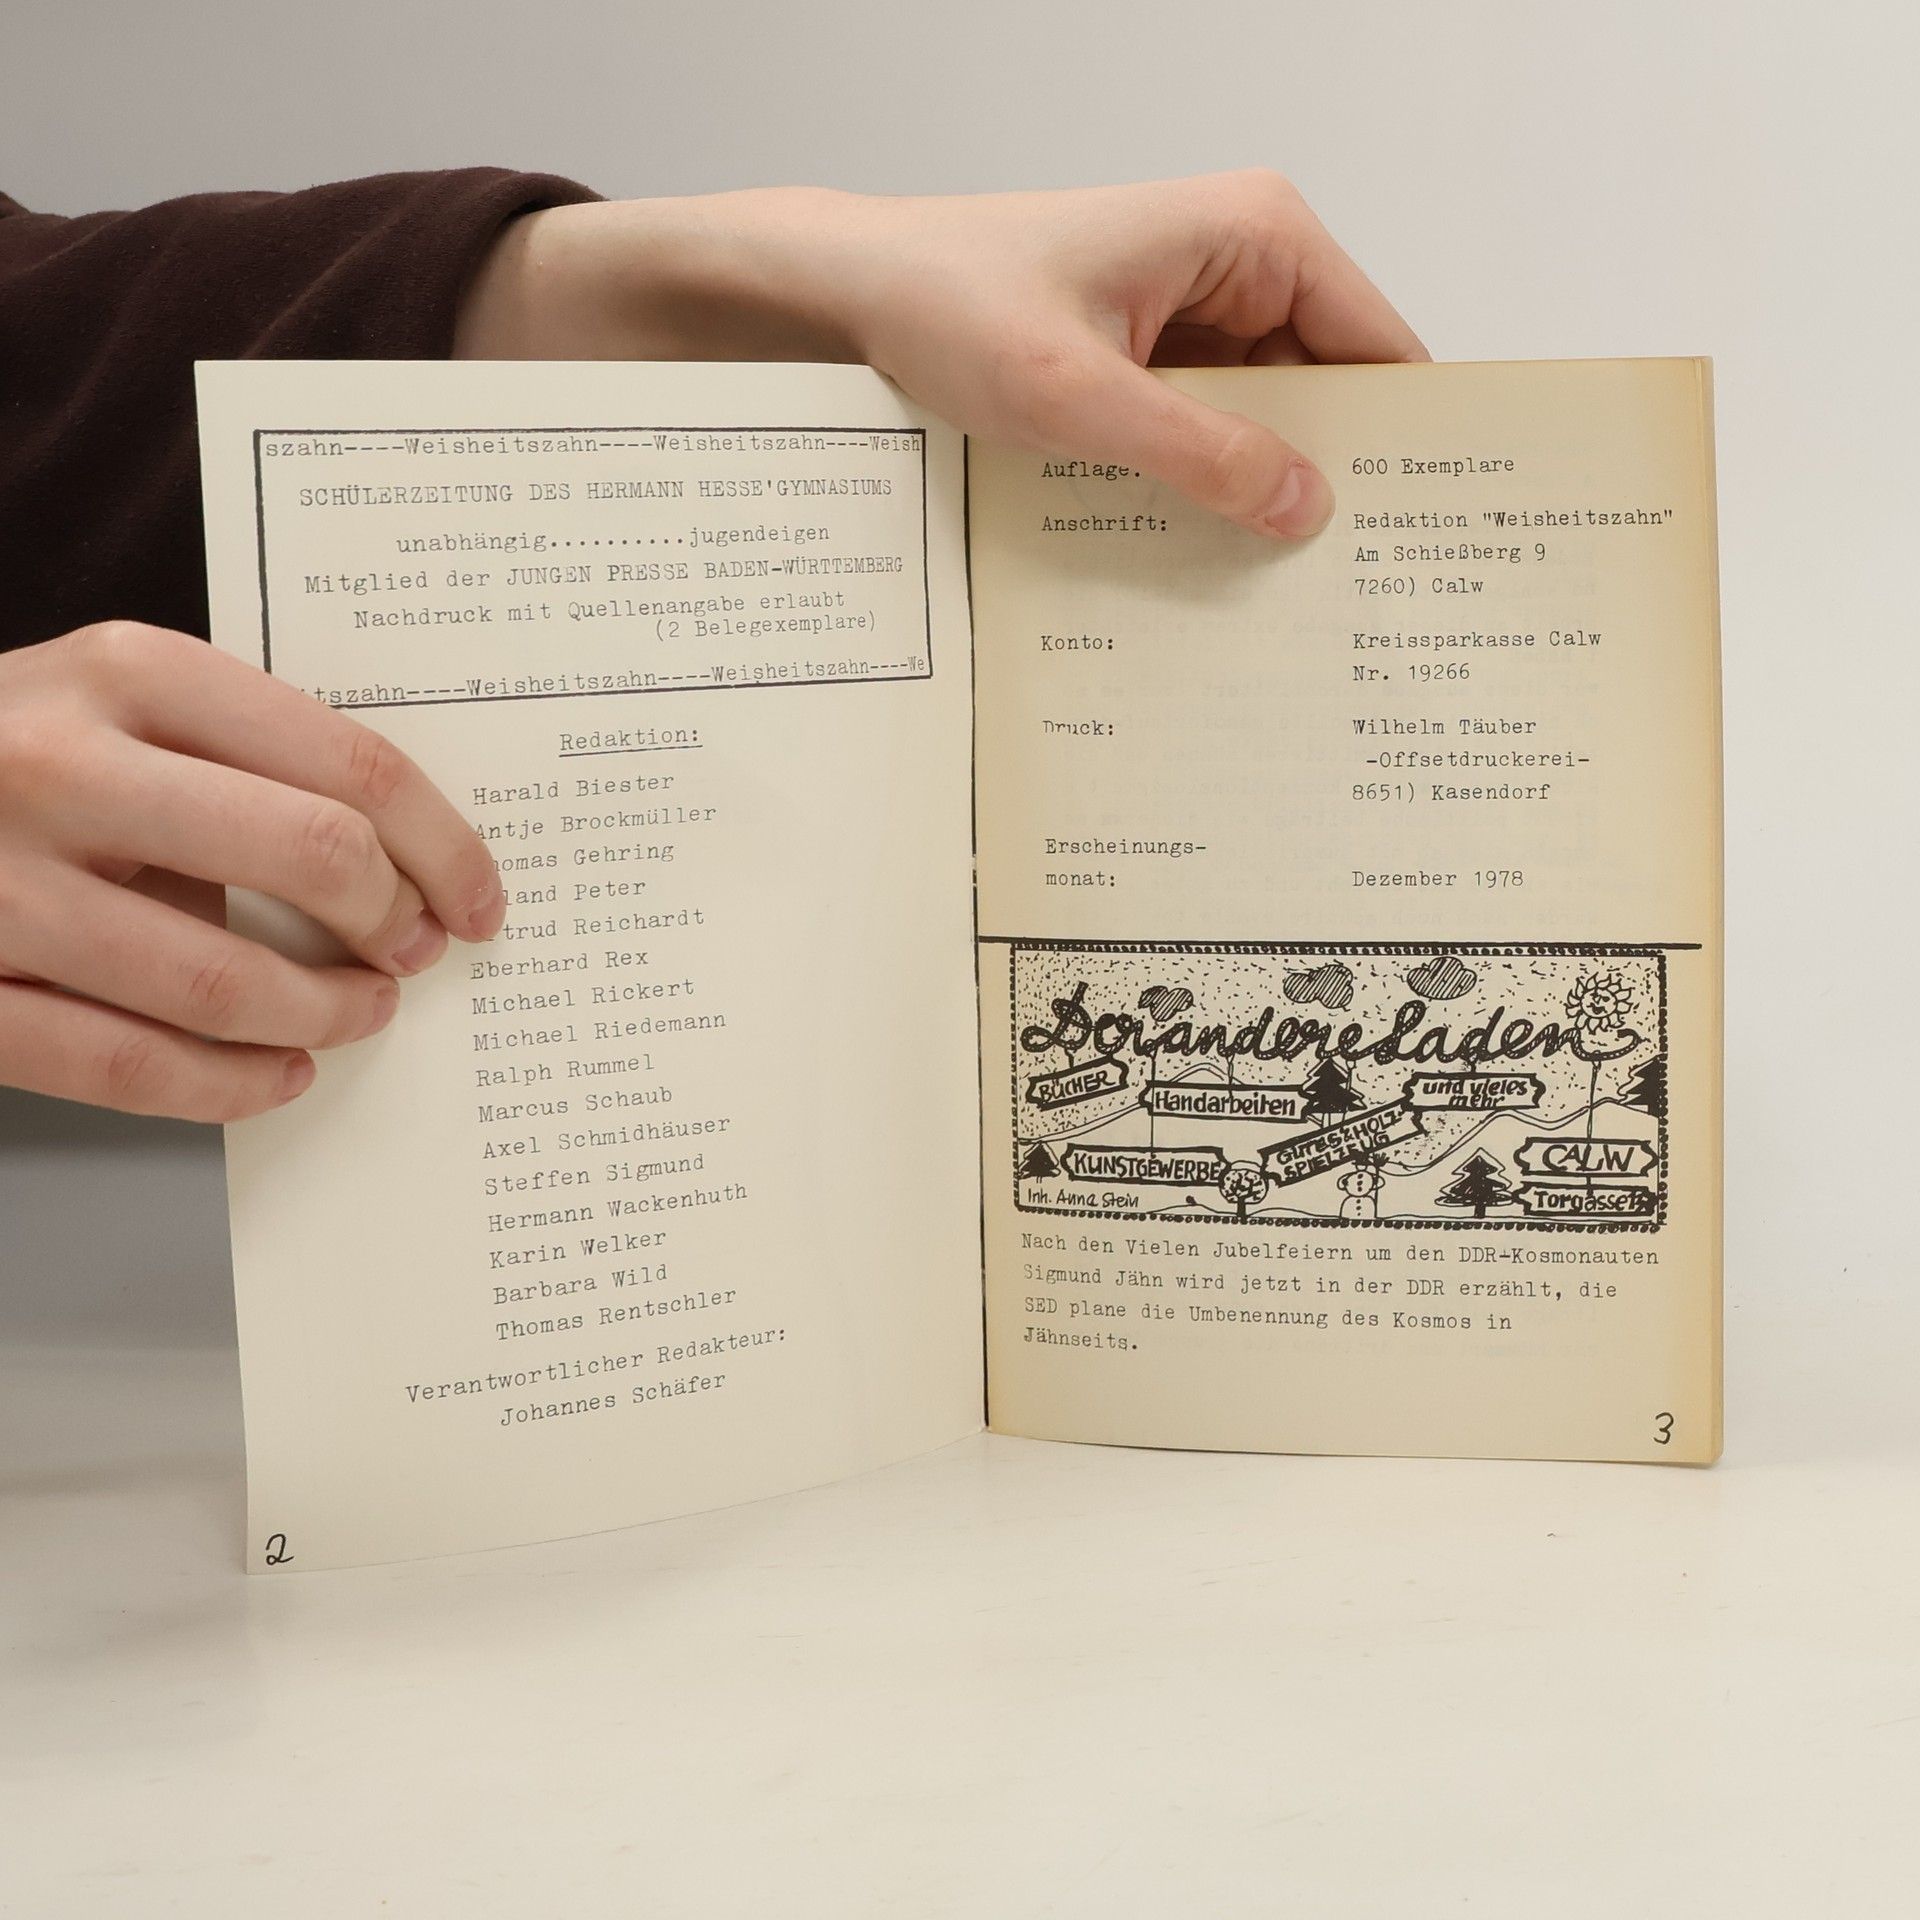 szahn----Weisheitszahn----Weisheitszahn----Weish
SCHÜLERZEITUNG DES HERMANN HESSE'GYMNASIUMS
unabhängig..........jugendeigen
Mitglied der JUNGEN PRESSE BADEN-WÜRTTEMBERG
Nachdruck mit Quellenangabe erlaubt
(2 Belegexemplare)
tszahn----Weisheitszahn----Weisheitszahn----We
Redaktion:
Harald Biester
Antje Brockmüller
homas Gehring
land Peter
trud Reichardt
Eberhard Rex
Michael Rickert
Michael Riedemann
Ralph Rummel
Marcus Schaub
Axel Schmidhäuser
Steffen Sigmund
Hermann Wackenhuth
Karin Welker
Barbara Wild
Thomas Rentschler
Verantwortlicher Redakteur:
Johannes Schäfer
2
Auflage: 600 Exemplare
Anschrift: Redaktion "Weisheitszahn"
Am Schießberg 9
7260) Calw
Konto: Kreissparkasse Calw
Nr. 19266
Druck: Wilhelm Täuber
-Offsetdruckerei-
8651) Kasendorf
Erscheinungs-
monat: Dezember 1978
Der andere Laden
BÜCHER
Handarbeiten
und vieles
mehr
GUTES & HOLZ-
SPIELZEUG
KUNSTGEWERBE
CALW
Torgasse
Inh. Anna Stein
Nach den Vielen Jubelfeiern um den DDR-Kosmonauten
Sigmund Jähn wird jetzt in der DDR erzählt, die
SED plane die Umbenennung des Kosmos in
Jähnseits.
3